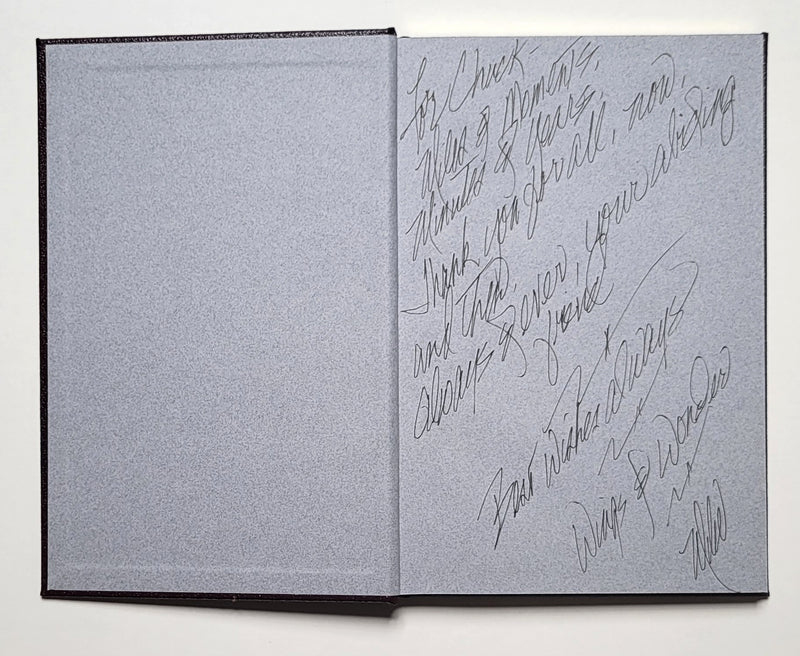 For Chuck –
Miles & Moments,
Minutes & Years,
Thank you for all, now,
and then.
Always & ever, your abiding
friend
Best Wishes always
Wings & Wonder